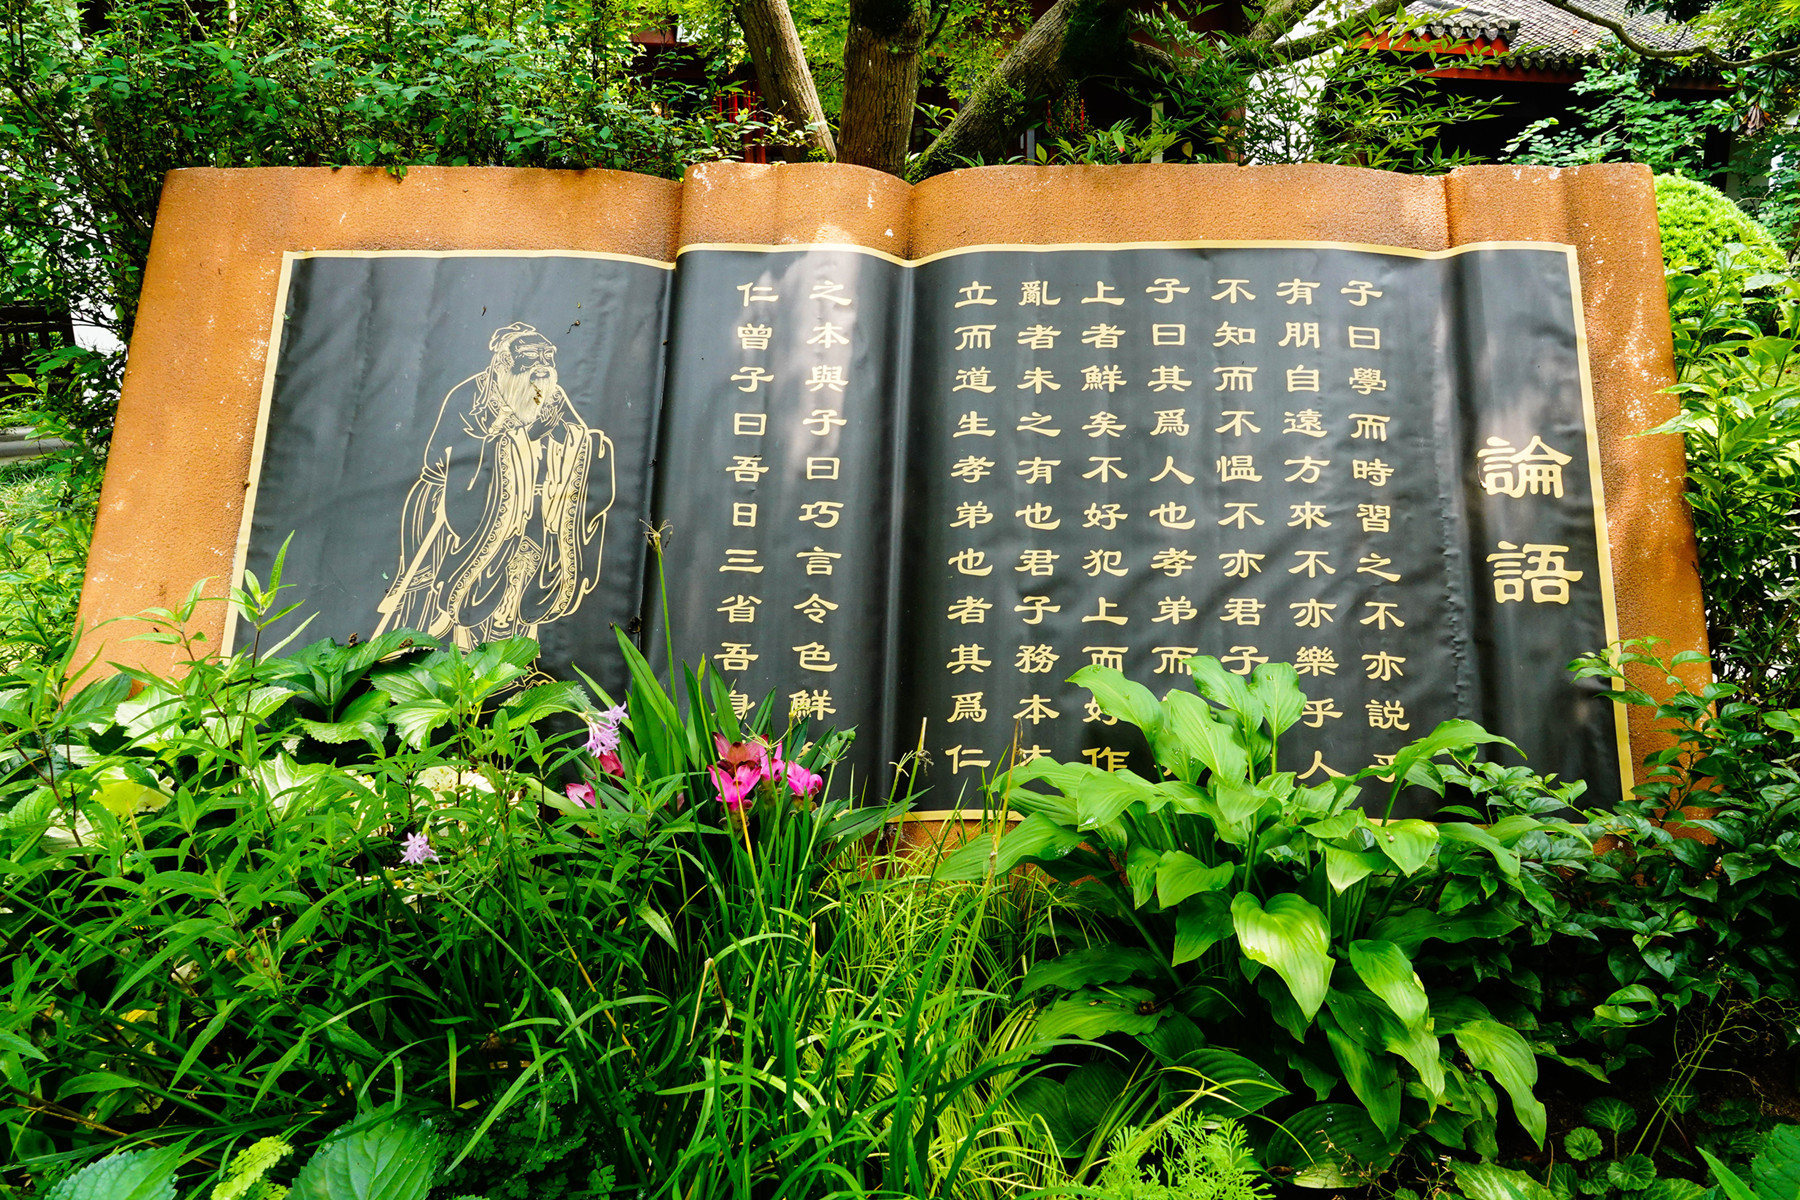 論語
子曰學而時習之不亦説乎
有朋自遠方來不亦樂乎人
不知而不愠不亦君子
子曰其爲人也孝弟而
上者鮮矣不好犯上而好作
亂者未之有也君子務本本
立而道生孝弟也者其爲仁
之本與子曰巧言令色鮮
仁曾子曰吾日三省吾身